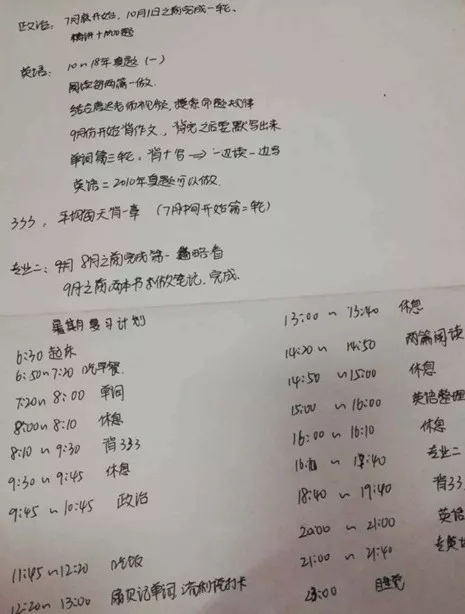 政治: 7月底开始, 10月1日之前完成一轮、
精讲+1000题
英语: 10~18年真题 (一)
阅读每两篇一做.
结合唐迟老师视频, 摸索命题规律
9月份开始背作文, 背完之后要默写出来
单词第三轮, 背+写 ⇒ 一边读一边写
英语二2010年真题可以做.
333, 平均每天背一章 (7月中间开始第二轮)
专业二: 9月 8月之前完成第一 略看
9月之前两本书 做笔记, 完成.
暑期复习计划
6:30 起床
6:50~7:20 吃早餐.
7:20~8:00 单词
8:00~8:10 休息
8:10~9:30 背333
9:30~9:45 休息
9:45~10:45 政治
11:45~12:20 吃饭
12:20~13:00 扇贝记单词 流利说打卡
13:00~13:40 休息
14:20~14:50 两篇阅读
14:50~15:00 休息
15:00~16:00 英语整理
16:00~16:10 休息
专业二
18:40~19:40 背33
20:00~21:00 英语
21:00~21:40
23:00 睡觉